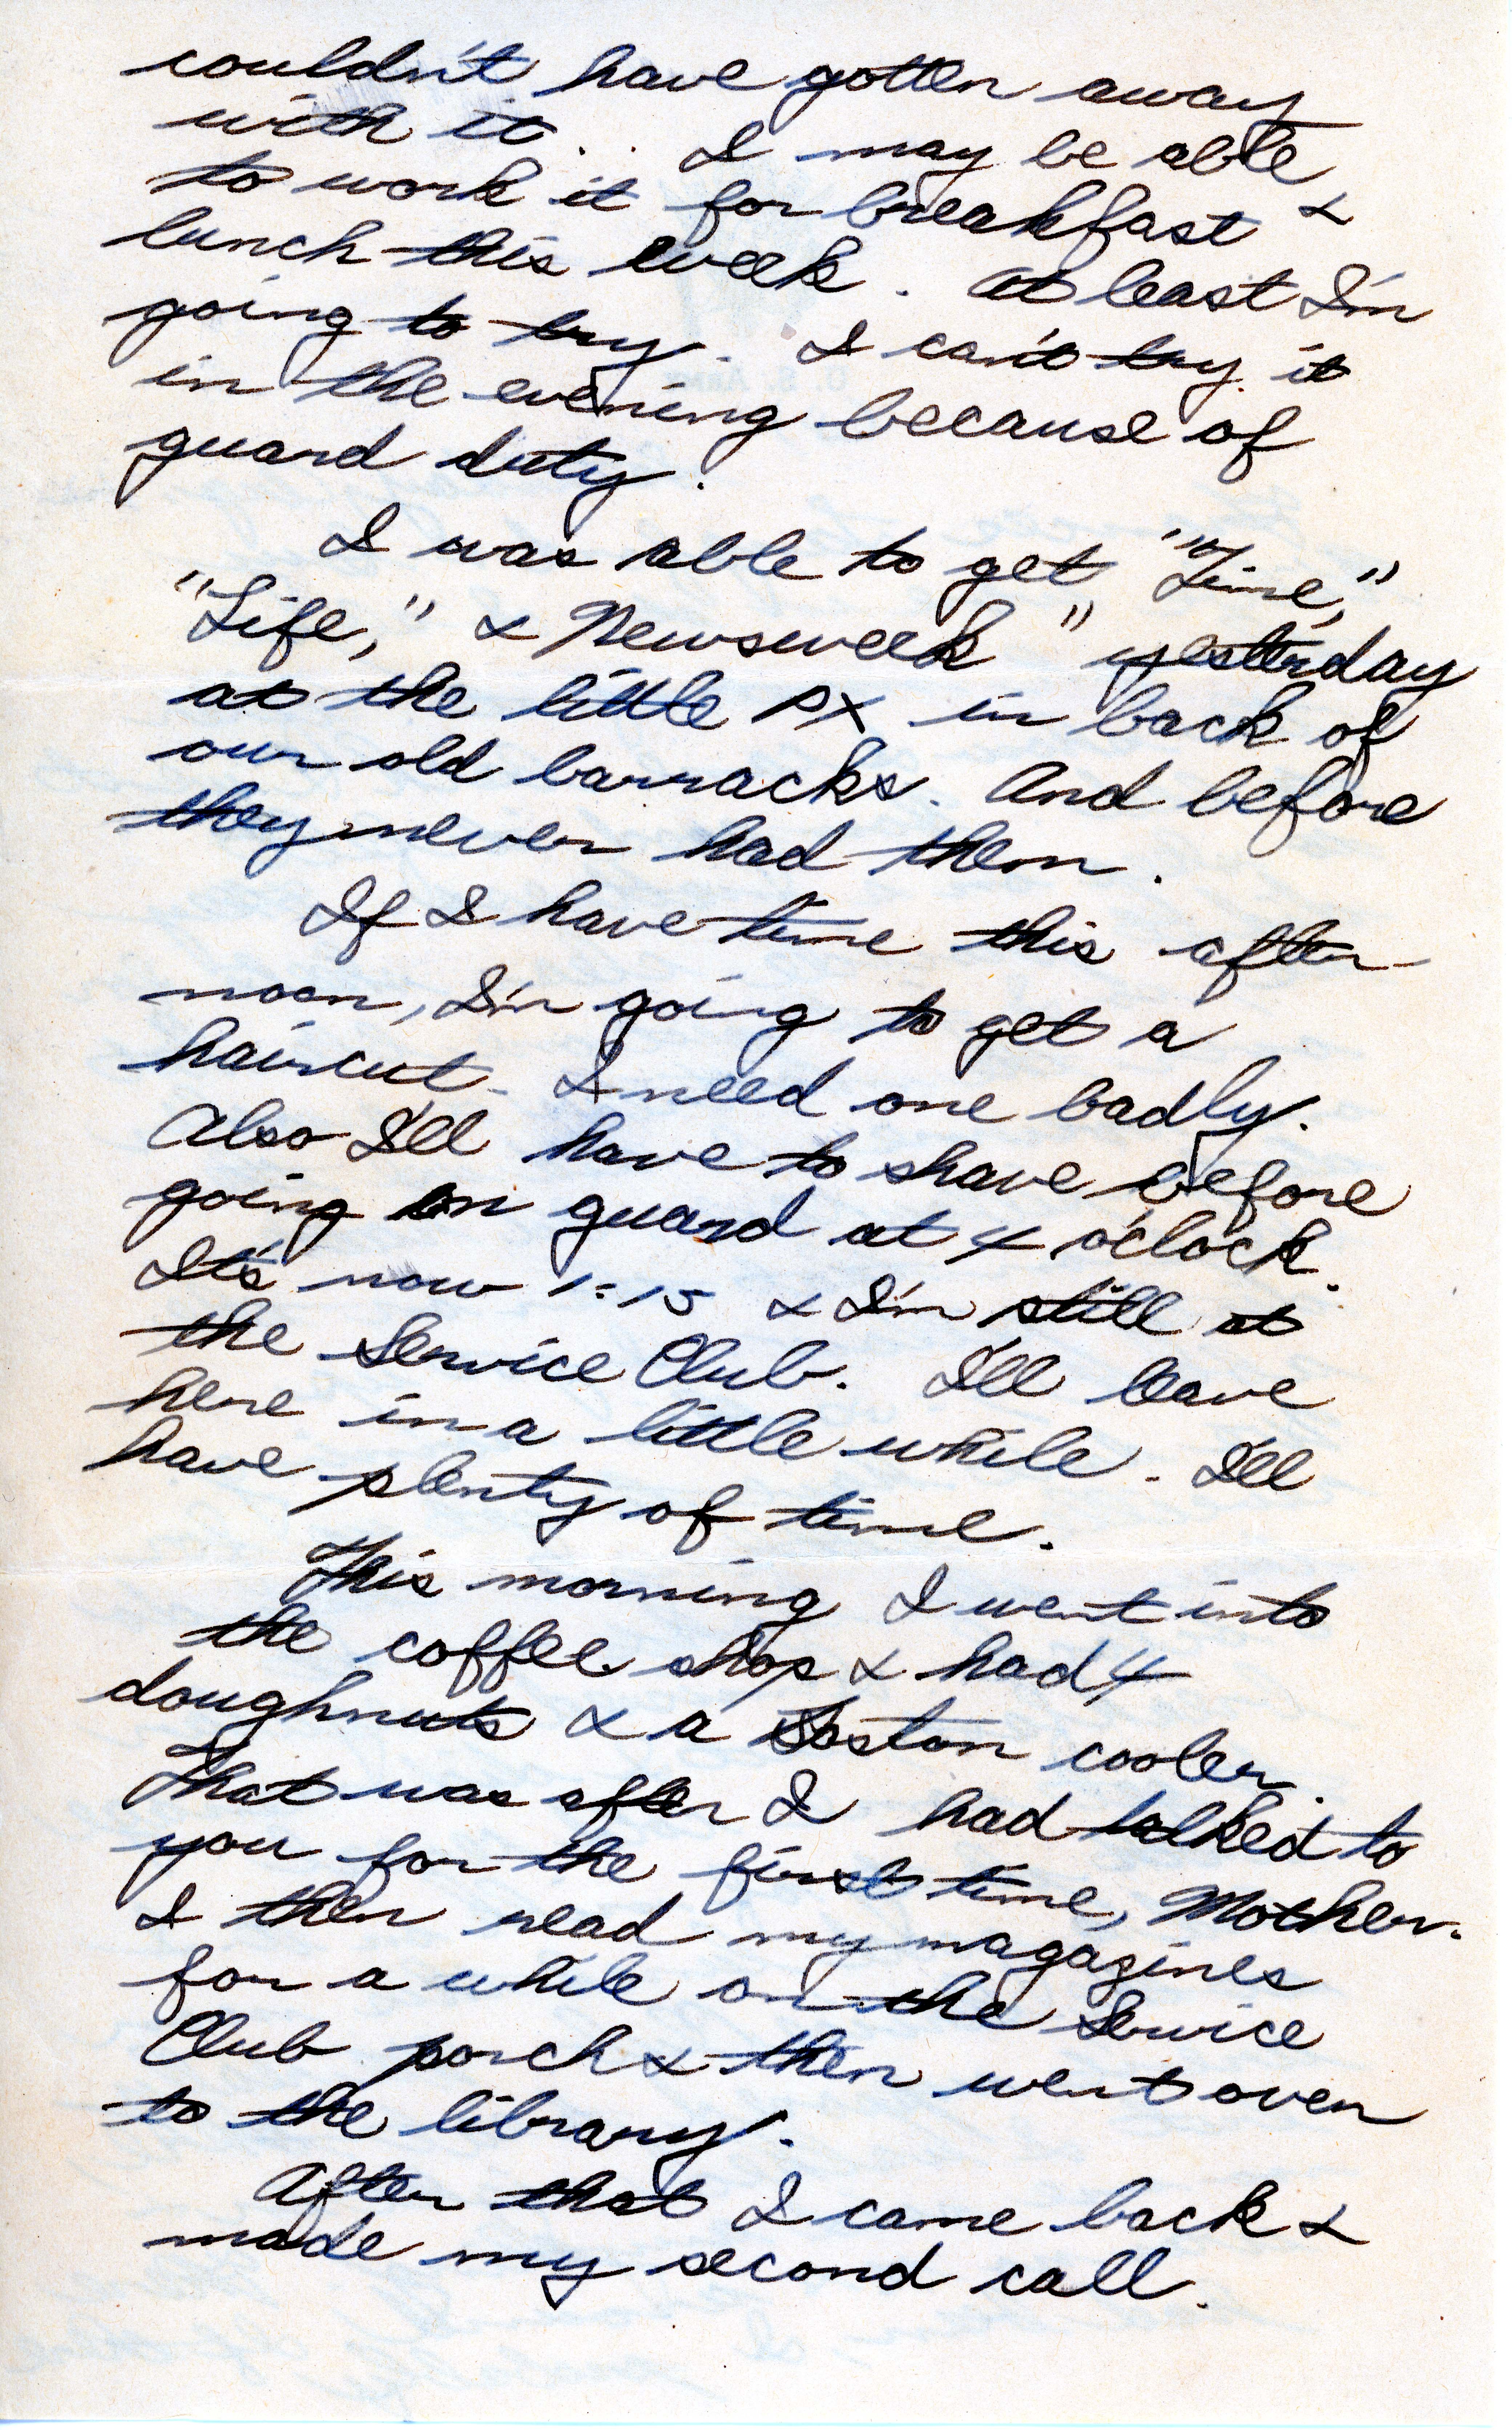 couldn't have gotten away
with it.. I may be able
to work it for breakfast &
lunch this week. At least I'm
going to try. I can't try it
in the evening because of
guard duty.
I was able to get "Time,"
"Life," & Newsweek" yesterday
at the little PX in back of
our old barracks. And before
they never had them.
If I have time this after-
noon, I'm going to get a
haircut. I need one badly.
Also I'll have to shave before
going on guard at 4 o'clock.
It's now 1:15 & I'm still at
the Service Club. I'll leave
here in a little while. I'll
have plenty of time.
This morning I went into
the coffee shop & had 4
doughnuts & a Boston cooler.
That was after I had talked to
you for the first time, Mother.
I then read my magazines
for a while on the Service
Club porch & then went over
to the library.
After that I came back &
made my second call.